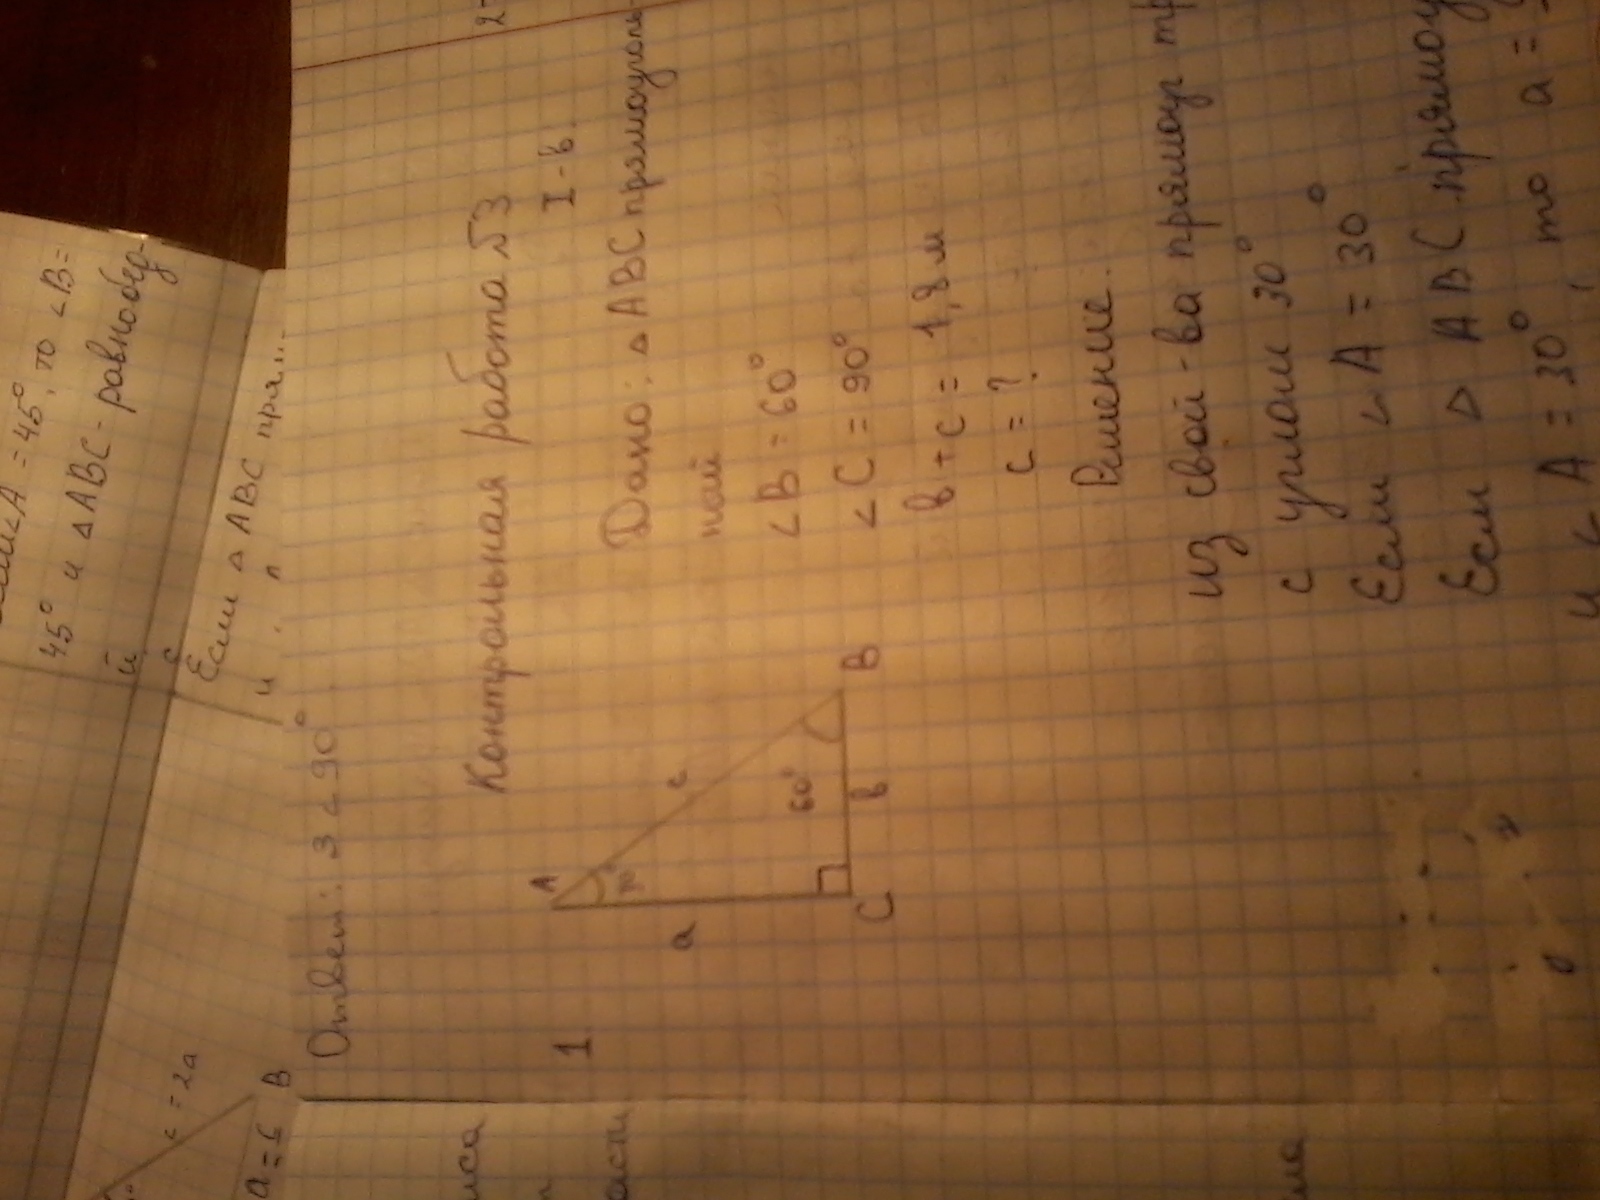 45°, то ∠B=
45° и △ABC - равнобед-
Если △ABC пря...
и
c = 2a
B
Ответ: 3 < 90°
Контрольная работа №3
I-в.
1.
A
c
a
60°
C
в
B
Дано: △ABC прямоуголь
ной
∠B = 60°
∠C = 90°
в + c = 1,8 м
c = ?
Решение.
из свой-ва прямоуг тр
с углом 30°
Если ∠A = 30°
Если △ ABC прямоуг
и ∠A = 30°, то a =